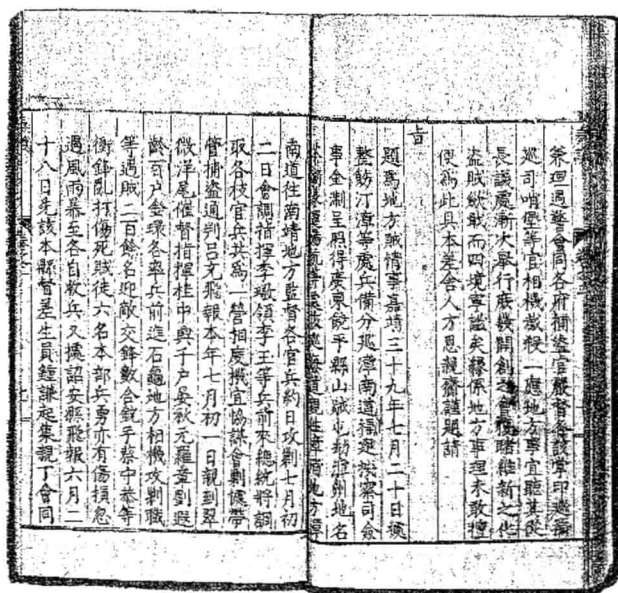 管理遇警會同各府捕盜官嚴督各該掌印巡捕
巡司哨堡等官相機撫殺一應地方事宜聽其從
長議處漸次舉行庶幾開創之會復睹維新之化
盜賊歛戢而四境寧謐矣緣係地方事理未敢擅
便為此具本差舍人方恩親齎謹題請
旨
題為地方賊情事嘉靖三十九年七月二十日據
整飭汀漳等處兵備分巡漳南道福建按察司僉
事金淛呈照得廣東饒平縣山賊屯劫
南道往南靖地方監督各官兵約日攻剿七月初
二日會調指揮李 領李王等兵前來總統將調
取各枝官兵共為一營相度機宜協謀會剿據帶
管捕盜通判呂允飛報本年七月初一日親到翠
微洋尾催督指揮桂中與千戶晏秋元羅章劉遐
齡百戶金環各率兵前進石龜地方相機攻剿職
等遇賊二百餘名迎敵交鋒數合銃手蔡中泰等
衝鋒亂打傷死賊徒六名本部兵勇亦有傷損忽
遇風雨暴至各自救兵又據詔安縣飛報六月二
十八日先該本縣督差生員鍾謙起集親丁會同